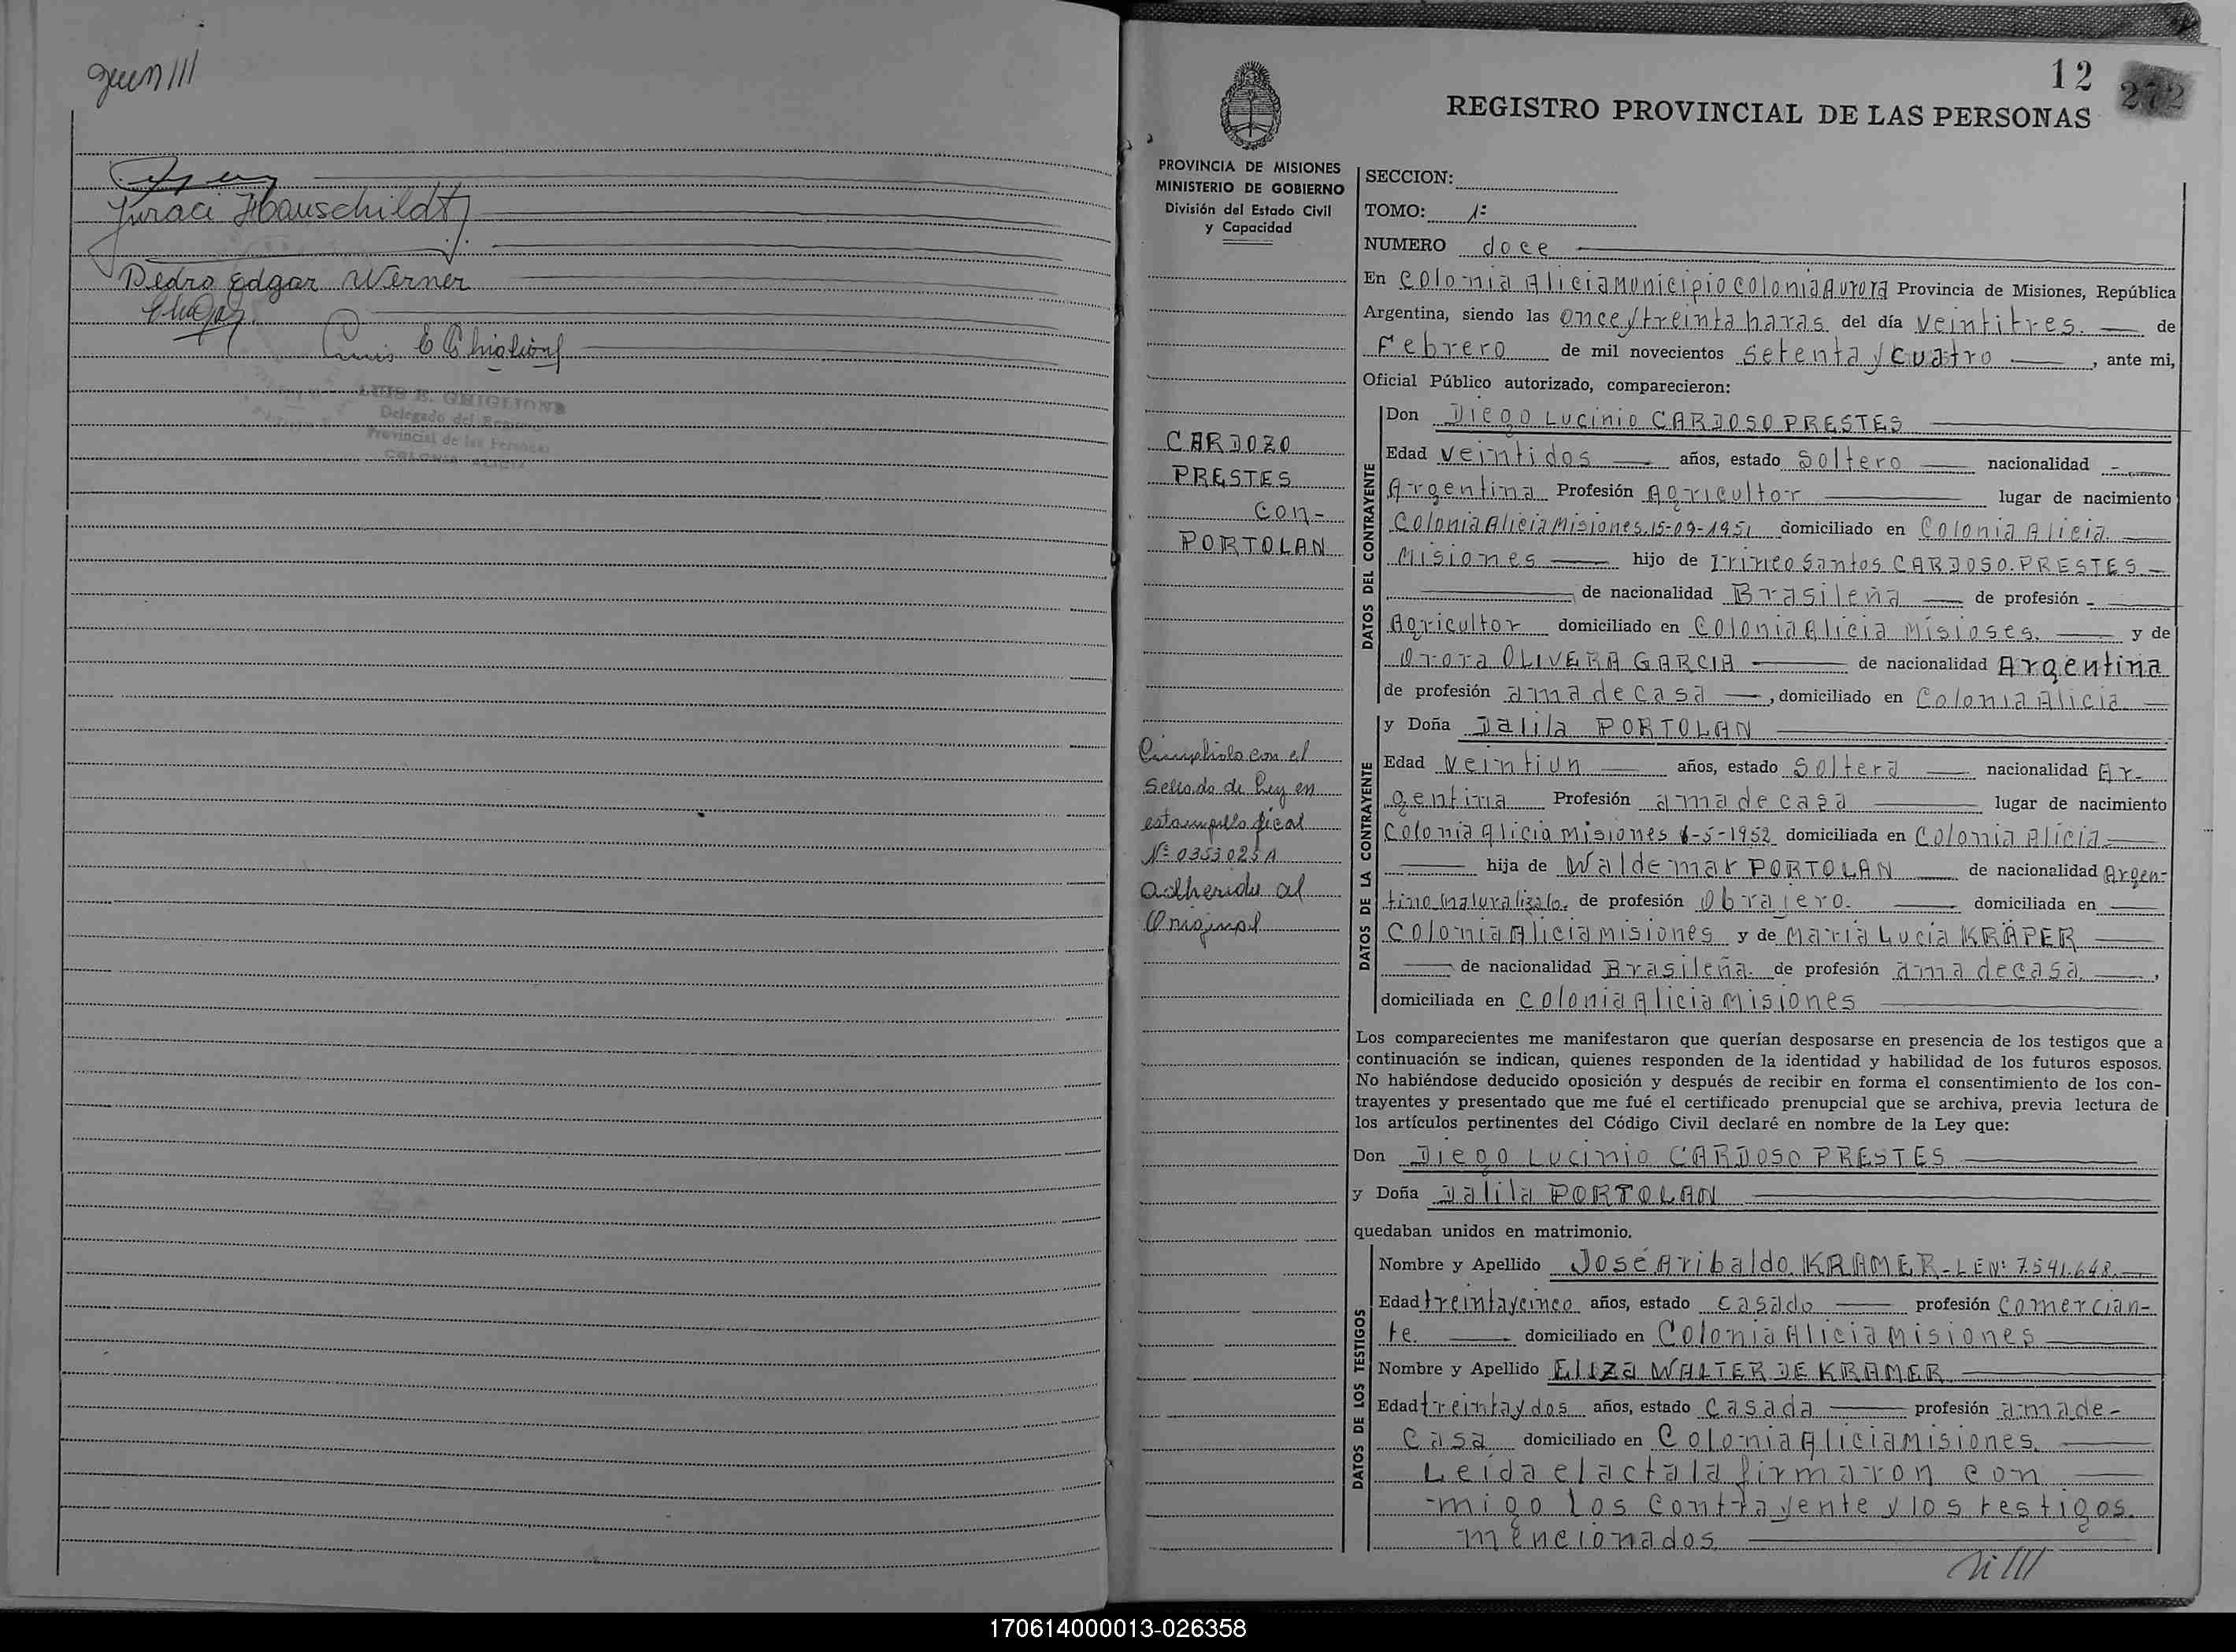 Juraci Hauschildt
Pedro Edgar Werner
Luis E Ghiglione
LUIS E. GHIGLIONE
Delegado del Registro
Provincial de las Personas
COLONIA ALICIA
12
272
REGISTRO PROVINCIAL DE LAS PERSONAS
PROVINCIA DE MISIONES
MINISTERIO DE GOBIERNO
División del Estado Civil
y Capacidad
CARDOZO
PRESTES
CON-
PORTOLAN
Cumplido con el
Sellado de Ley en
estampilla fiscal
Nº 0353025A
adherida al
Original
SECCION:
TOMO: 1º
NUMERO doce
En Colonia Alicia Municipio Colonia Aurora Provincia de Misiones, República
Argentina, siendo las once y treinta haras del día veintitres. de
Febrero de mil novecientos setenta y cuatro , ante mi,
Oficial Público autorizado, comparecieron:
DATOS DEL CONTRAYENTE
Don Diego Lucinio CARDOSO PRESTES
Edad veintidos años, estado Soltero nacionalidad -
Argentina Profesión Agricultor lugar de nacimiento
Colonia Alicia Misiones, 15-09-1951 domiciliado en Colonia Alicia.
Misiones hijo de Irineo Santos CARDOSO. PRESTES
de nacionalidad Brasileña de profesión -
Agricultor domiciliado en Colonia Alicia Misioses. y de
Orora OLIVERA GARCIA de nacionalidad Argentina
de profesión ama de casa , domiciliado en Colonia Alicia
DATOS DE LA CONTRAYENTE
y Doña Dalila PORTOLAN
Edad veintiun años, estado Soltera nacionalidad Ar-
gentina Profesión ama de casa lugar de nacimiento
Colonia Alicia Misiones 6-5-1952 domiciliada en Colonia Alicia
hija de Waldemar PORTOLAN de nacionalidad Argen-
tino naturalizalo. de profesión Obrajero. domiciliada en
Colonia Alicia Misiones y de Maria Lucia KRÄPER
de nacionalidad Brasileña. de profesión ama de casa ,
domiciliada en Colonia Alicia Misiones
Los comparecientes me manifestaron que querían desposarse en presencia de los testigos que a
continuación se indican, quienes responden de la identidad y habilidad de los futuros esposos.
No habiéndose deducido oposición y después de recibir en forma el consentimiento de los con-
trayentes y presentado que me fué el certificado prenupcial que se archiva, previa lectura de
los artículos pertinentes del Código Civil declaré en nombre de la Ley que:
Don Diego Lucinio CARDOSO PRESTES
y Doña Dalila PORTOLAN
quedaban unidos en matrimonio.
DATOS DE LOS TESTIGOS
Nombre y Apellido José Aribaldo KRAMER - L E Nº 7.541.648.
Edad treinta y cinco años, estado casado profesión Comercian-
te. domiciliado en Colonia Alicia Misiones
Nombre y Apellido Eliza WALTER DE KRAMER
Edad treinta y dos años, estado Casada profesión ama de-
Casa domiciliado en Colonia Alicia Misiones.
Leida el acta la firmaron con
migo los contrayente y los testigos.
mencionados
170614000013-026358